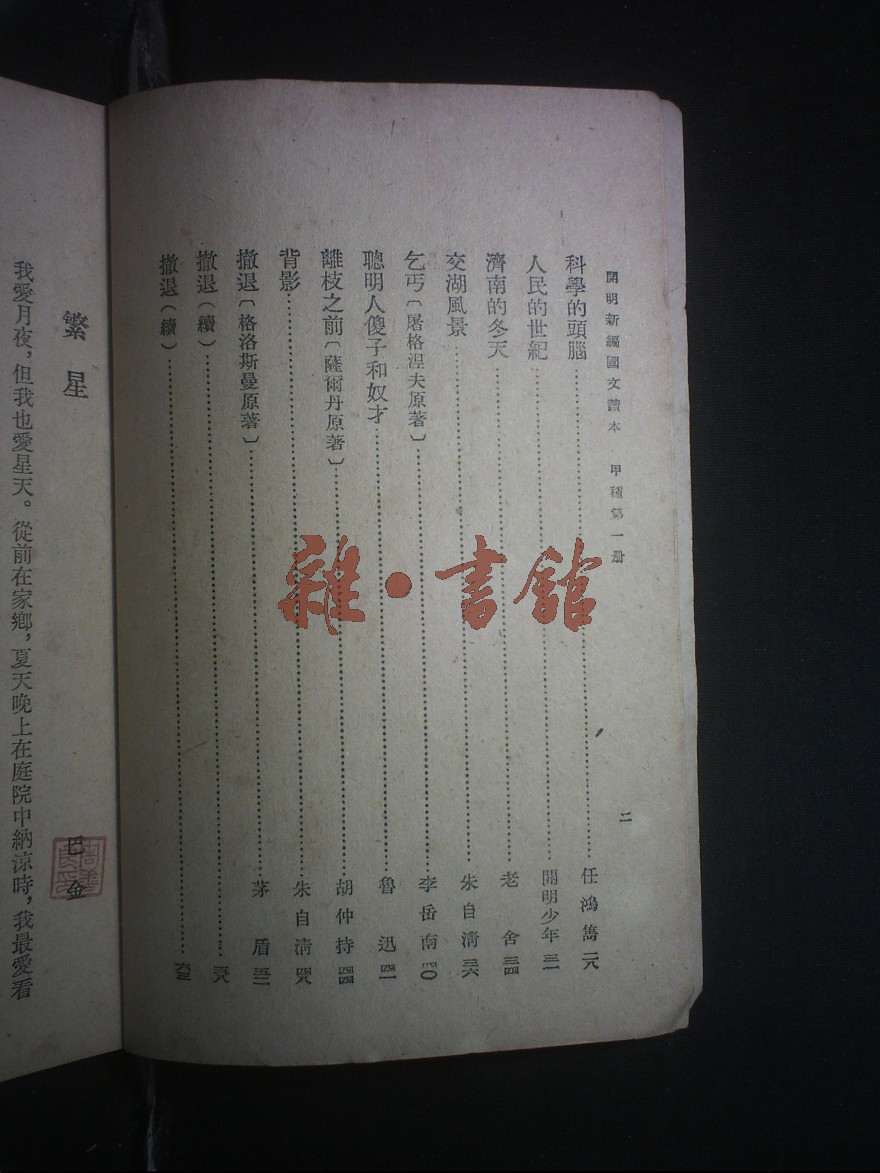 開明新編國文讀本　甲種第一册
二
科學的頭腦……任鴻雋 二八
人民的世紀……開明少年 三一
濟南的冬天……老舍 三四
交湖風景……朱自清 三六
乞丐〔屠格涅夫原著〕……李岳南 四〇
聰明人傻子和奴才……魯迅 四一
離枝之前〔薩爾丹原著〕……胡仲持 四四
背影……朱自清 四八
撤退〔格洛斯曼原著〕……茅盾 五二
撤退（續）……五八
撤退（續）……六三
繁星
巴金
我愛月夜，但我也愛星天。從前在家鄉，夏天晚上在庭院中納涼時，我最愛看
雜·書館